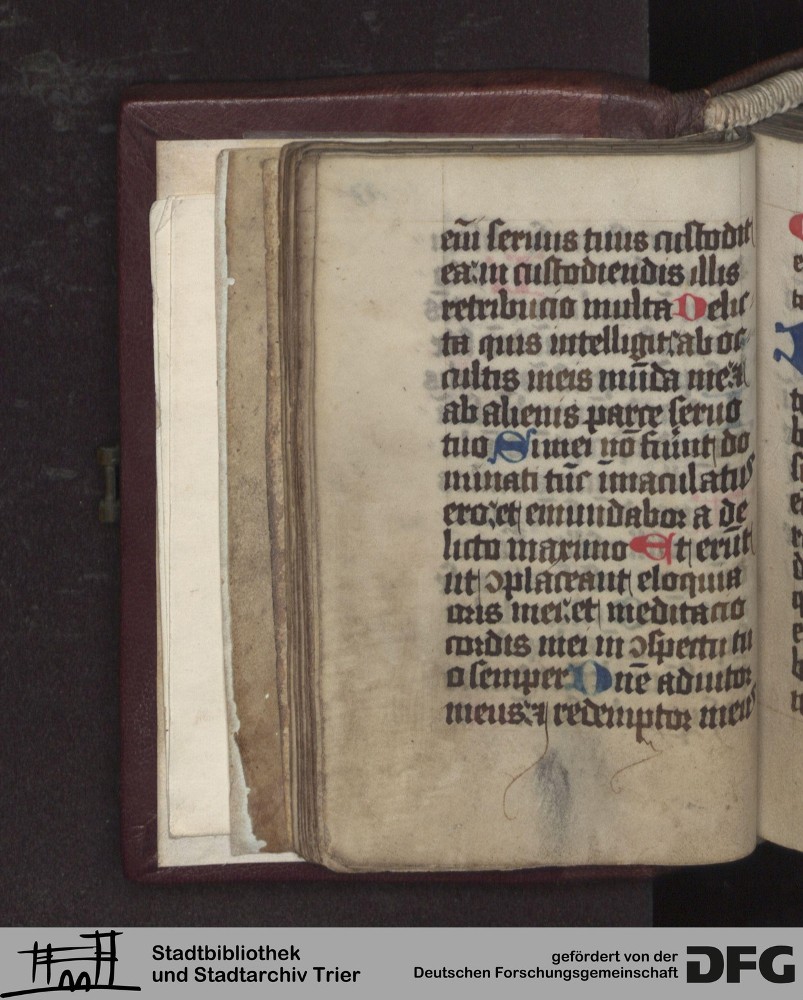 eīm seruus tuus custodit
ea: in custodiendis illis
retribucio multa Delic
ta quis intelligit: ab oc
cultis meis mūda me: ⁊
ab alienis parce seruo
tuo Si mei nō fūint do
minati tūc īmaculatus
ero: et emundabor a de
licto maximo Et erūt
ut ꝯplaceant eloquia
oris mei: et meditacio
cordis mei in ꝯspectu tu
o semper Dn̄e adiutor
meus: ⁊ redemptor meus
Stadtbibliothek
und Stadtarchiv Trier
gefördert von der
Deutschen Forschungsgemeinschaft
DFG